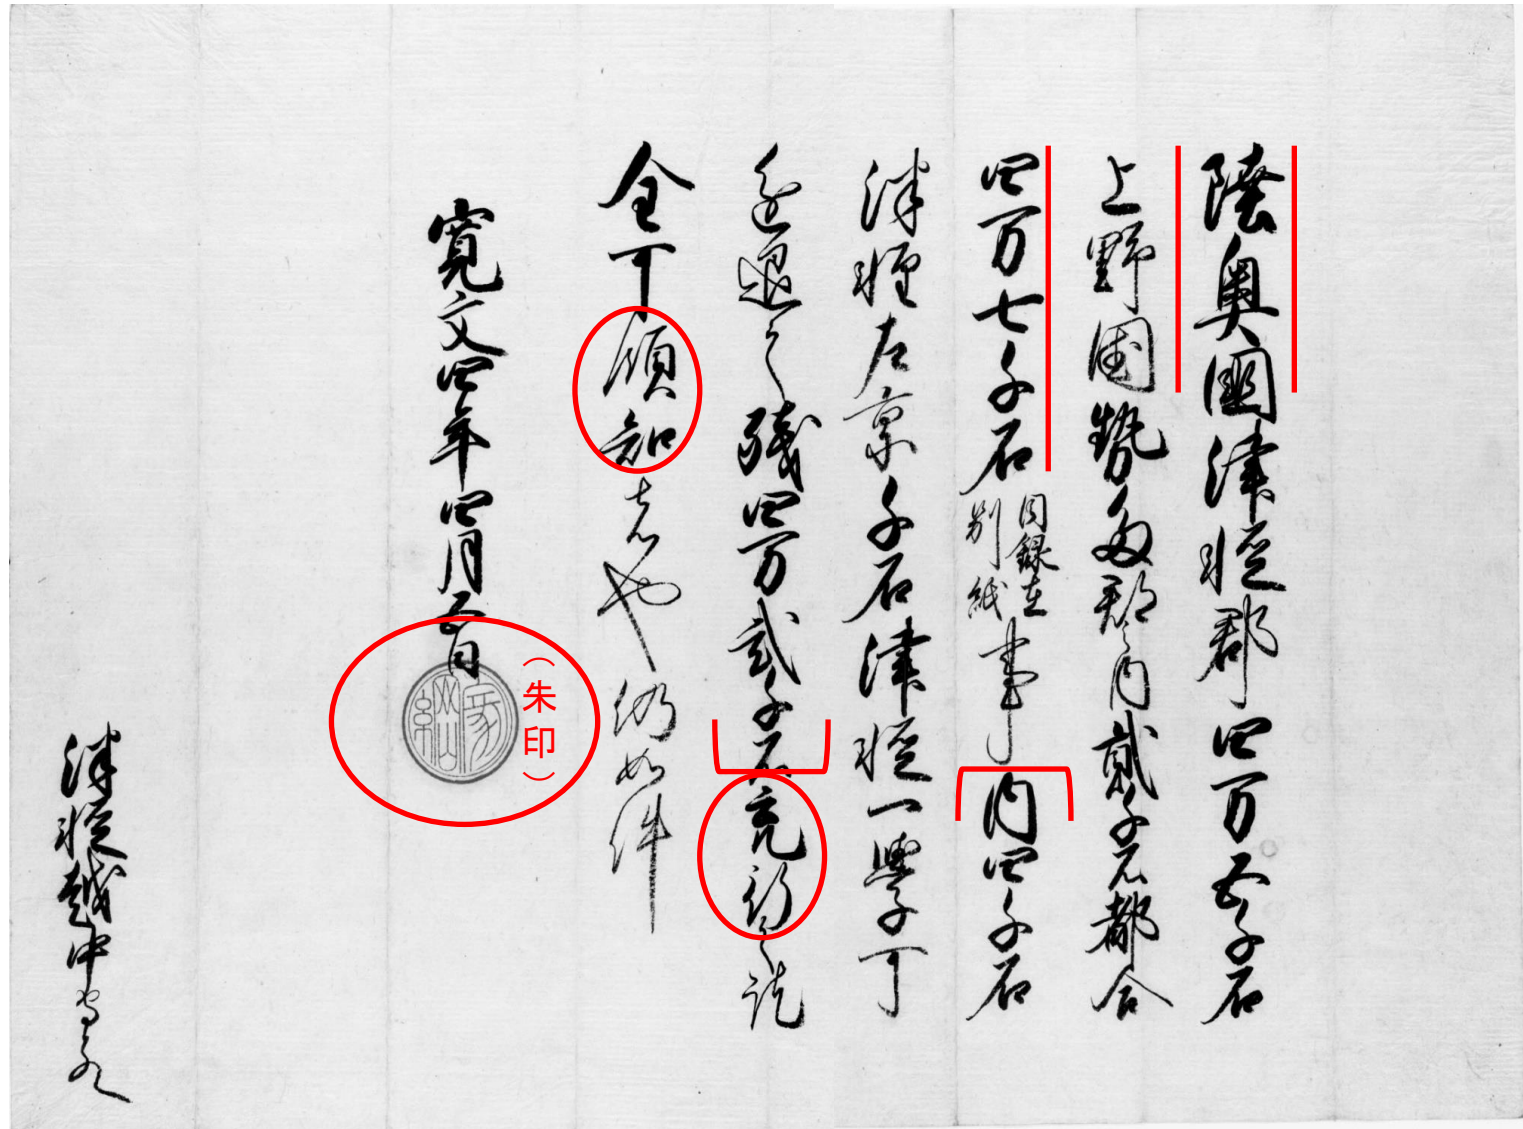 陸奥國津軽郡四万五千石
上野國勢多郡之内貳千石都合
四万七千石目録在別紙事内四千石
津軽左京千石津軽一學可
進退之残四万貳千石充行之訖
全可領知者也仍如件
寛文四年四月五日
(朱印)
家綱
津軽越中守とのへ